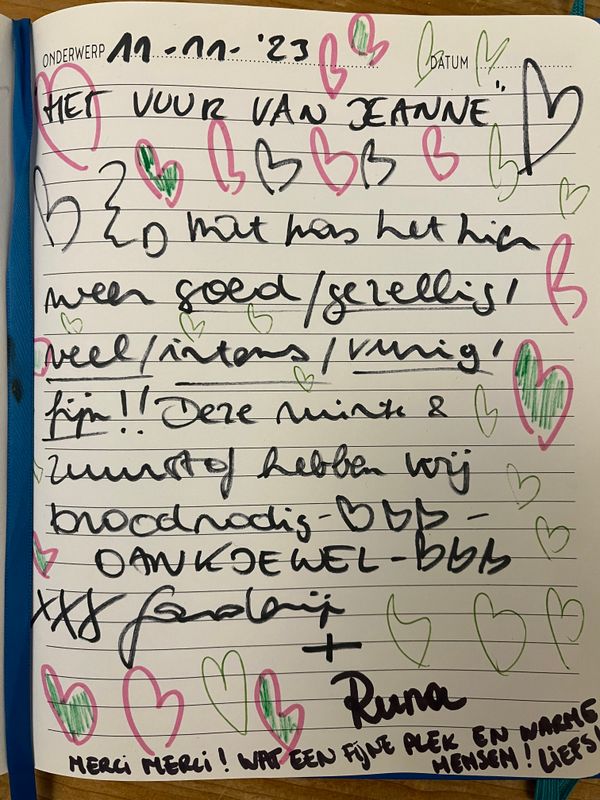 ONDERWERP 11-11-'23 DATUM
"HET VUUR VAN JEANNE"
Wat was het hier
weer goed/gezellig/
veel/intens/vurig/
fijn!! Deze ruimte &
zuurstof hebben wij
broodnodig - -
DANKJEWEL -
XXX
+
Runa
MERCI MERCI! WAT EEN FIJNE PLEK EN WARME
MENSEN! LIEFS!